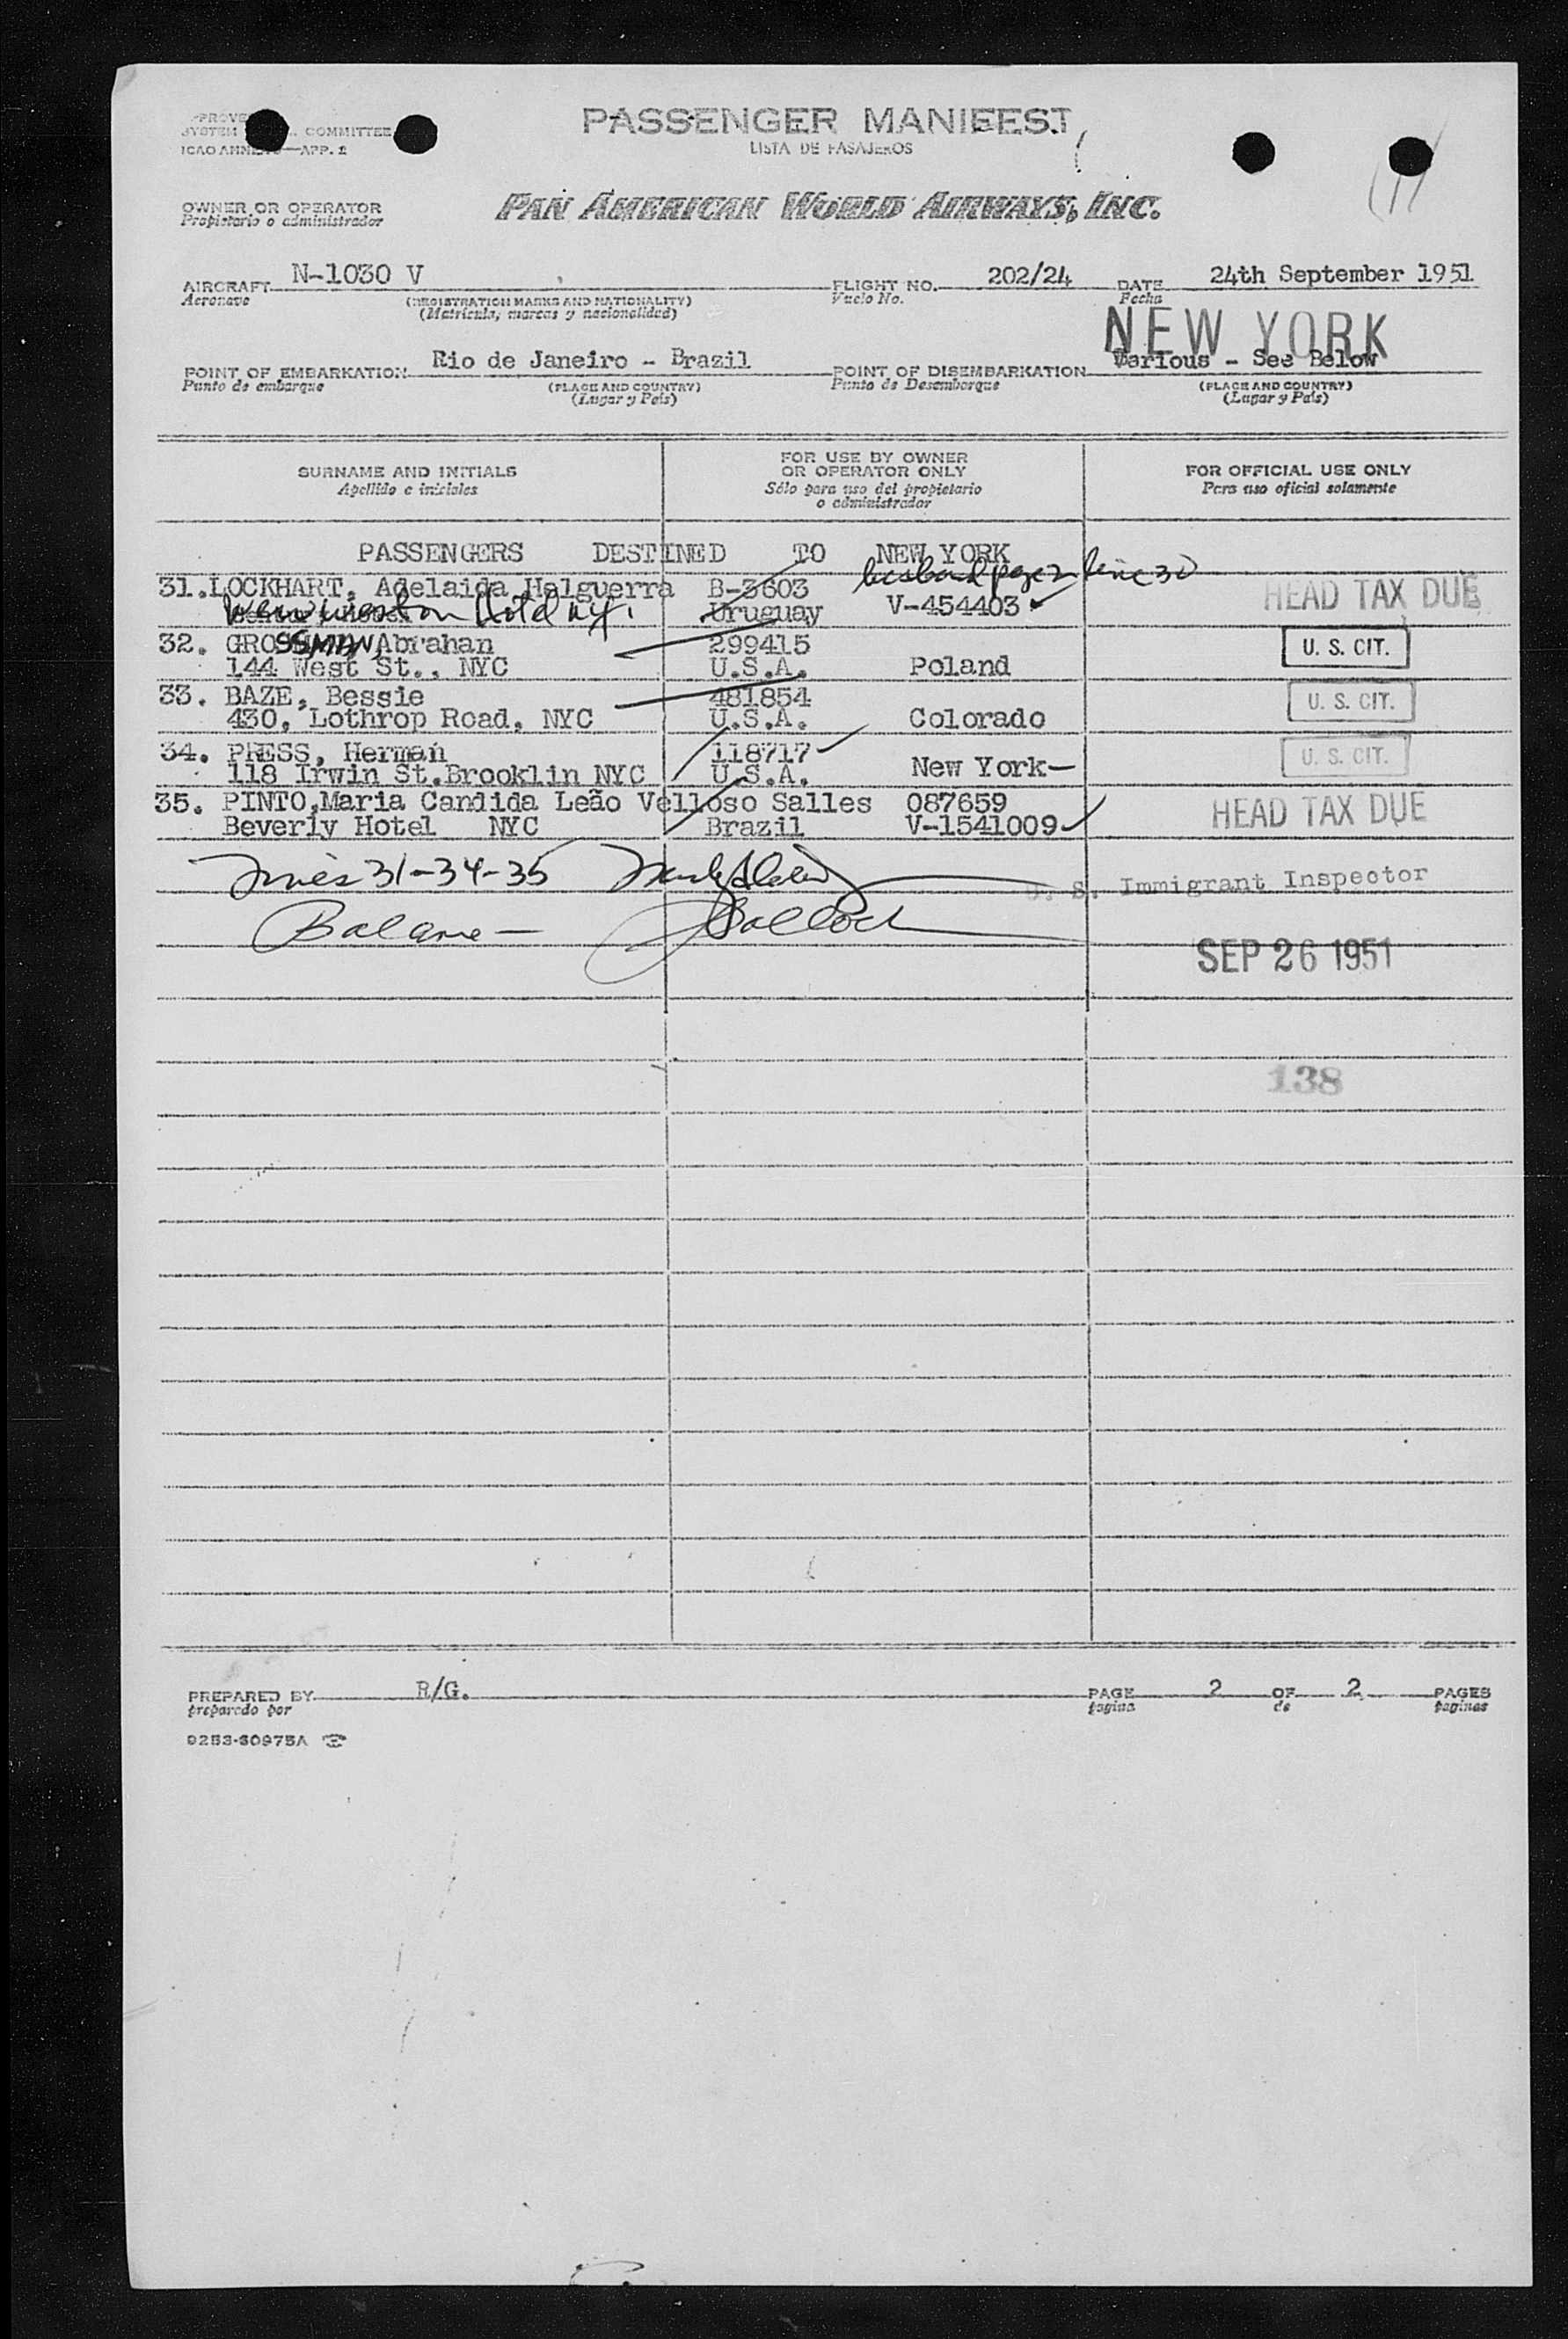 PASSENGER MANIFEST
LISTA DE PASAJEROS
COMMITTEE
APP. 2
OWNER OR OPERATOR
Propietario o administrador
PAN AMERICAN WORLD AIRWAYS, INC.
AIRCRAFT N-1030 V FLIGHT NO. 202/24 DATE 24th September 1951
Aeronave (REGISTRATION MARKS AND NATIONALITY) Vuelo No. Fecha
(Matrícula, marcas y nacionalidad)
NEW YORK
POINT OF EMBARKATION Rio de Janeiro - Brazil POINT OF DISEMBARKATION Various - See Below
Punto de embarque (PLACE AND COUNTRY) Punto de Desembarque (PLACE AND COUNTRY)
(Lugar y País) (Lugar y País)
SURNAME AND INITIALS
Apellido e iniciales
FOR USE BY OWNER
OR OPERATOR ONLY
Sólo para uso del propietario
o administrador
FOR OFFICIAL USE ONLY
Para uso oficial solamente
PASSENGERS DESTINED TO NEW YORK
husband page 2 line 30
31.LOCKHART, Adelaida Halguerra B-3603
Hotel NY. Uruguay V-454403 HEAD TAX DUE
32. GROSSMAN, Abrahan 299415
144 West St., NYC U.S.A. Poland U. S. CIT.
33. BAZE, Bessie 481854
430, Lothrop Road, NYC U.S.A. Colorado U. S. CIT.
34. PRESS, Herman 118717
118 Irwin St.Brooklin NYC U.S.A. New York- U. S. CIT.
35. PINTO,Maria Candida Leão Velloso Salles 087659
Beverly Hotel NYC Brazil V-1541009 HEAD TAX DUE
31-34-35
U. S. Immigrant Inspector
Balance -
SEP 26 1951
138
PREPARED BY R/G. PAGE 2 OF 2 PAGES
preparado por pagina de paginas
9253-60975A